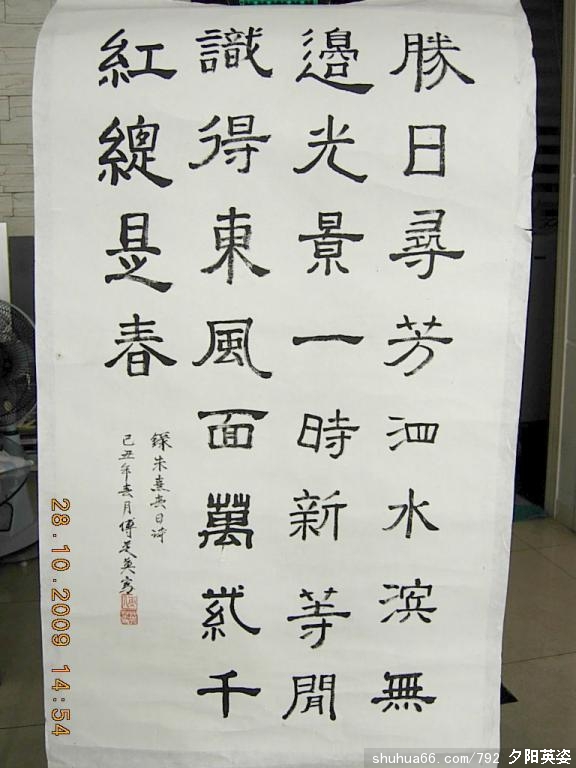 勝日尋芳泗水滨無
邊光景一時新等閒
識得東風面萬紫千
紅總是春
錄朱熹春日诗
己丑年春月傅英寫
28.10.2009 14:54
shuhua66.com/792 夕阳英姿